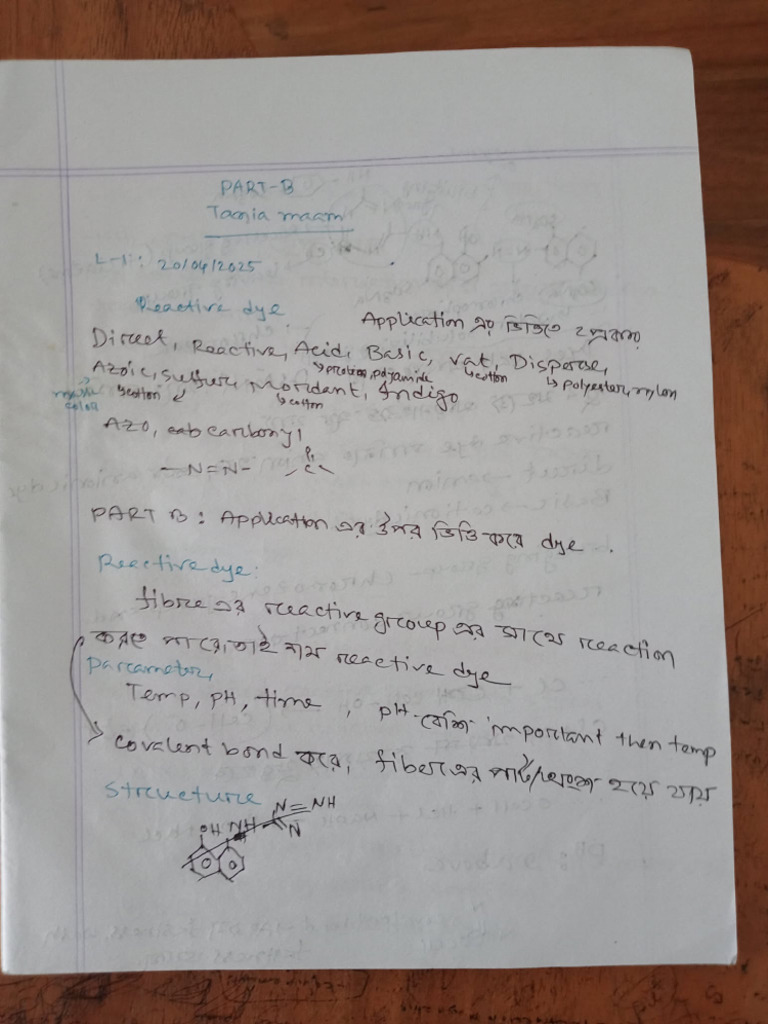 PART-B
Tania maam
L-1: 20/04/2025
Reactive dye
Application এর ভিত্তিতে
Direct, Reactive, Acid, Basic, vat, Disperse,
→protein, polyamide →cotton →polyester, nylon
Azoic, sulfur, Mordant, Indigo
color →cotton →cotton
Azo, carbonyl
-N=N- C
PART B: Application এর উপর ভিত্তি করে dye.
Reactive dye:
fibre এর reactive group এর সাথে reaction
করতে পারে, তাই নাম reactive dye
Parameter,
Temp, pH, time, pH বেশি important then temp
covalent bond করে, fiber এর পার্ট/অংশ হয়ে যায়
Structure
OH NH N=NH
N